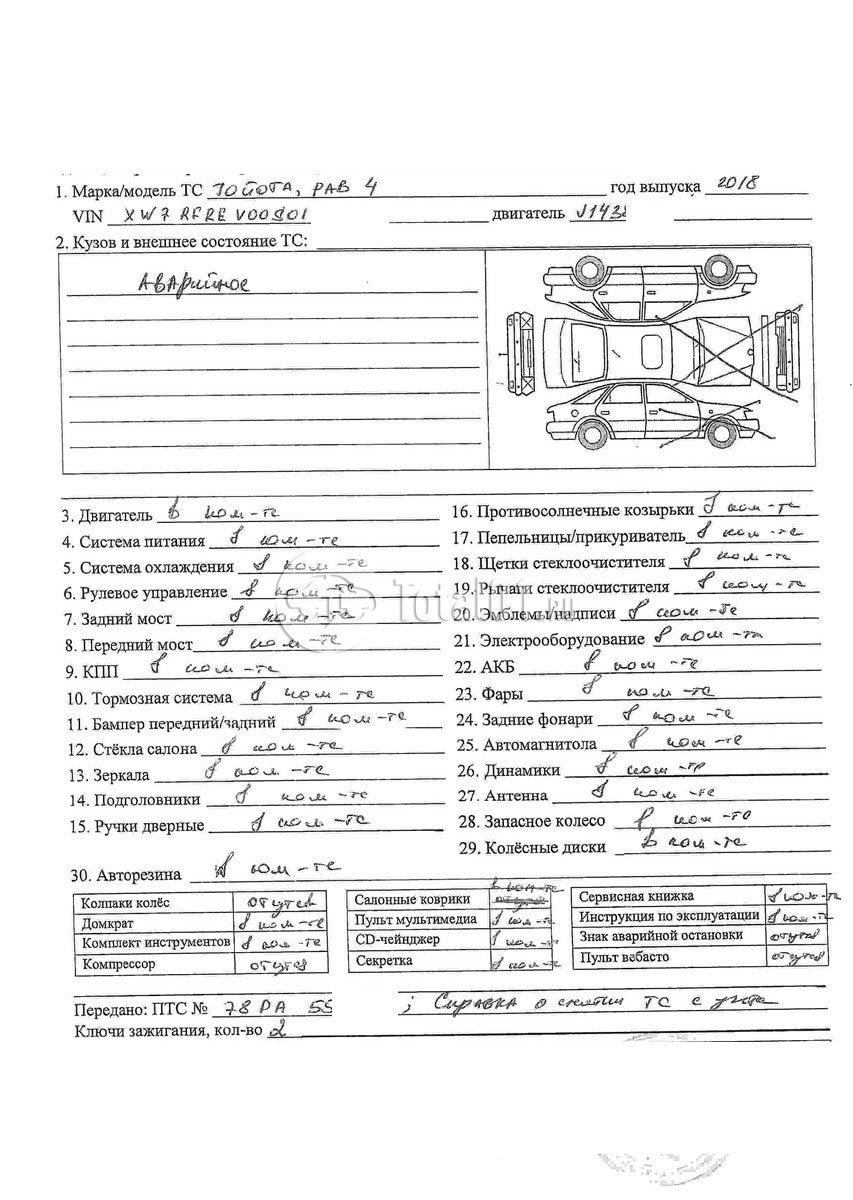 1. Марка/модель ТС ТОЙОТА, РАВ 4 год выпуска 2018
VIN XW7 RFRE V00S01 двигатель J1438
2. Кузов и внешнее состояние ТС:
Аварийное
3. Двигатель в ком-те
4. Система питания в ком-те
5. Система охлаждения в ком-те
6. Рулевое управление в ком-те
7. Задний мост в ком-те
8. Передний мост в ком-те
9. КПП в ком-те
10. Тормозная система в ком-те
11. Бампер передний/задний в ком-те
12. Стёкла салона в ком-те
13. Зеркала в ком-те
14. Подголовники в ком-те
15. Ручки дверные в ком-те
16. Противосолнечные козырьки в ком-те
17. Пепельницы/прикуриватель в ком-те
18. Щетки стеклоочистителя в ком-те
19. Рычаги стеклоочистителя в ком-те
20. Эмблемы/надписи в ком-те
21. Электрооборудование в ком-те
22. АКБ в ком-те
23. Фары в ком-те
24. Задние фонари в ком-те
25. Автомагнитола в ком-те
26. Динамики в ком-те
27. Антенна в ком-те
28. Запасное колесо в ком-те
29. Колёсные диски в ком-те
30. Авторезина в ком-те
Total01.ru
Колпаки колёс отсутств
Домкрат в ком-те
Комплект инструментов в ком-те
Компрессор отсутств
Салонные коврики в ком-те
Пульт мультимедиа в ком-те
CD-чейнджер в ком-те
Секретка в ком-те
Сервисная книжка в ком-те
Инструкция по эксплуатации в ком-те
Знак аварийной остановки отсутств
Пульт вебасто отсутств
Передано: ПТС № 78 РА 55 ; Справка о снятии ТС с учета
Ключи зажигания, кол-во 2